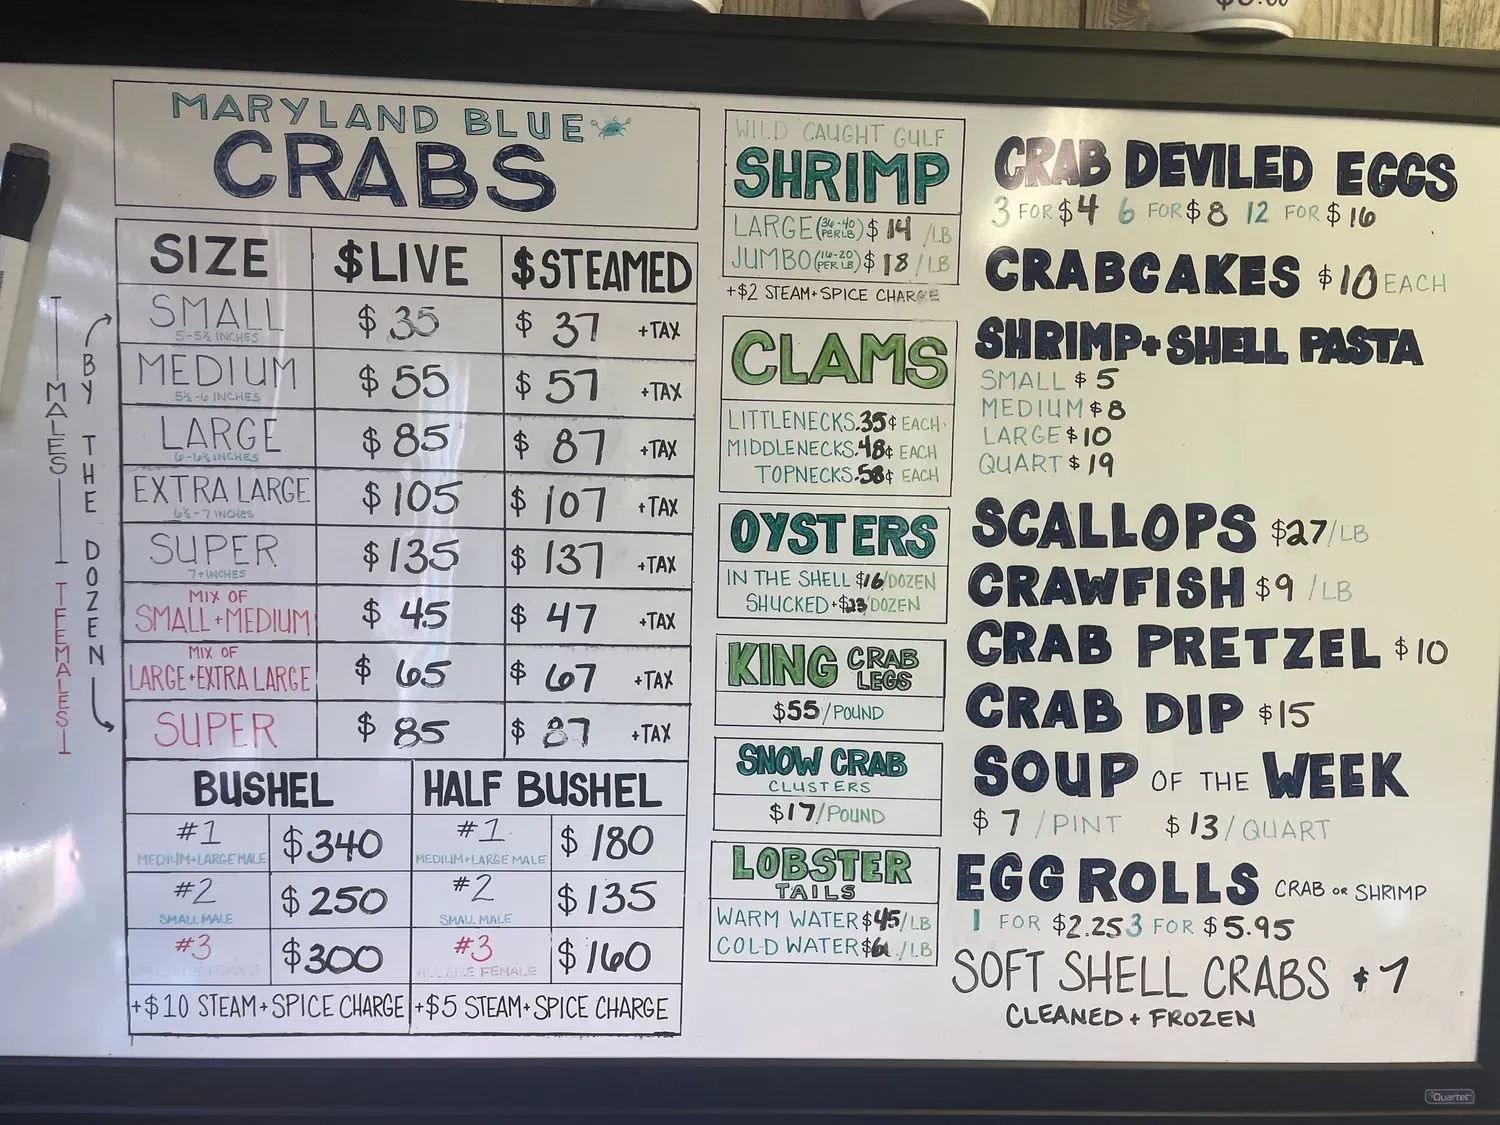 $6.00
MARYLAND BLUE
CRABS
SIZE $LIVE $STEAMED
SMALL $35 $37 +TAX
5-5½ INCHES
MEDIUM $55 $57 +TAX
5½-6 INCHES
LARGE $85 $87 +TAX
6-6½ INCHES
EXTRA LARGE $105 $107 +TAX
6½-7 INCHES
SUPER $135 $137 +TAX
7+INCHES
MIX OF
SMALL+MEDIUM $45 $47 +TAX
MIX OF
LARGE+EXTRA LARGE $65 $67 +TAX
SUPER $85 $87 +TAX
MALES
FEMALES
BY THE DOZEN
BUSHEL HALF BUSHEL
#1 $340 #1 $180
MEDIUM+LARGE MALE MEDIUM+LARGE MALE
#2 $250 #2 $135
SMALL MALE SMALL MALE
#3 $300 #3 $160
ALL SIZE FEMALE ALL SIZE FEMALE
+$10 STEAM+SPICE CHARGE +$5 STEAM+SPICE CHARGE
WILD CAUGHT GULF
SHRIMP
LARGE (36-40 PER LB) $14 /LB
JUMBO (16-20 PER LB) $18 /LB
+$2 STEAM+SPICE CHARGE
CLAMS
LITTLENECKS .35¢ EACH
MIDDLENECKS .48¢ EACH
TOPNECKS .58¢ EACH
OYSTERS
IN THE SHELL $16/DOZEN
SHUCKED $23/DOZEN
KING CRAB LEGS
$55/POUND
SNOW CRAB
CLUSTERS
$17/POUND
LOBSTER
TAILS
WARM WATER $45/LB
COLD WATER /LB
CRAB DEVILED EGGS
3 FOR $4 6 FOR $8 12 FOR $16
CRABCAKES $10 EACH
SHRIMP+SHELL PASTA
SMALL $5
MEDIUM $8
LARGE $10
QUART $19
SCALLOPS $27/LB
CRAWFISH $9 /LB
CRAB PRETZEL $10
CRAB DIP $15
SOUP OF THE WEEK
$7/PINT $13/QUART
EGG ROLLS CRAB OR SHRIMP
1 FOR $2.25 3 FOR $5.95
SOFT SHELL CRABS $7
CLEANED + FROZEN
Quartet